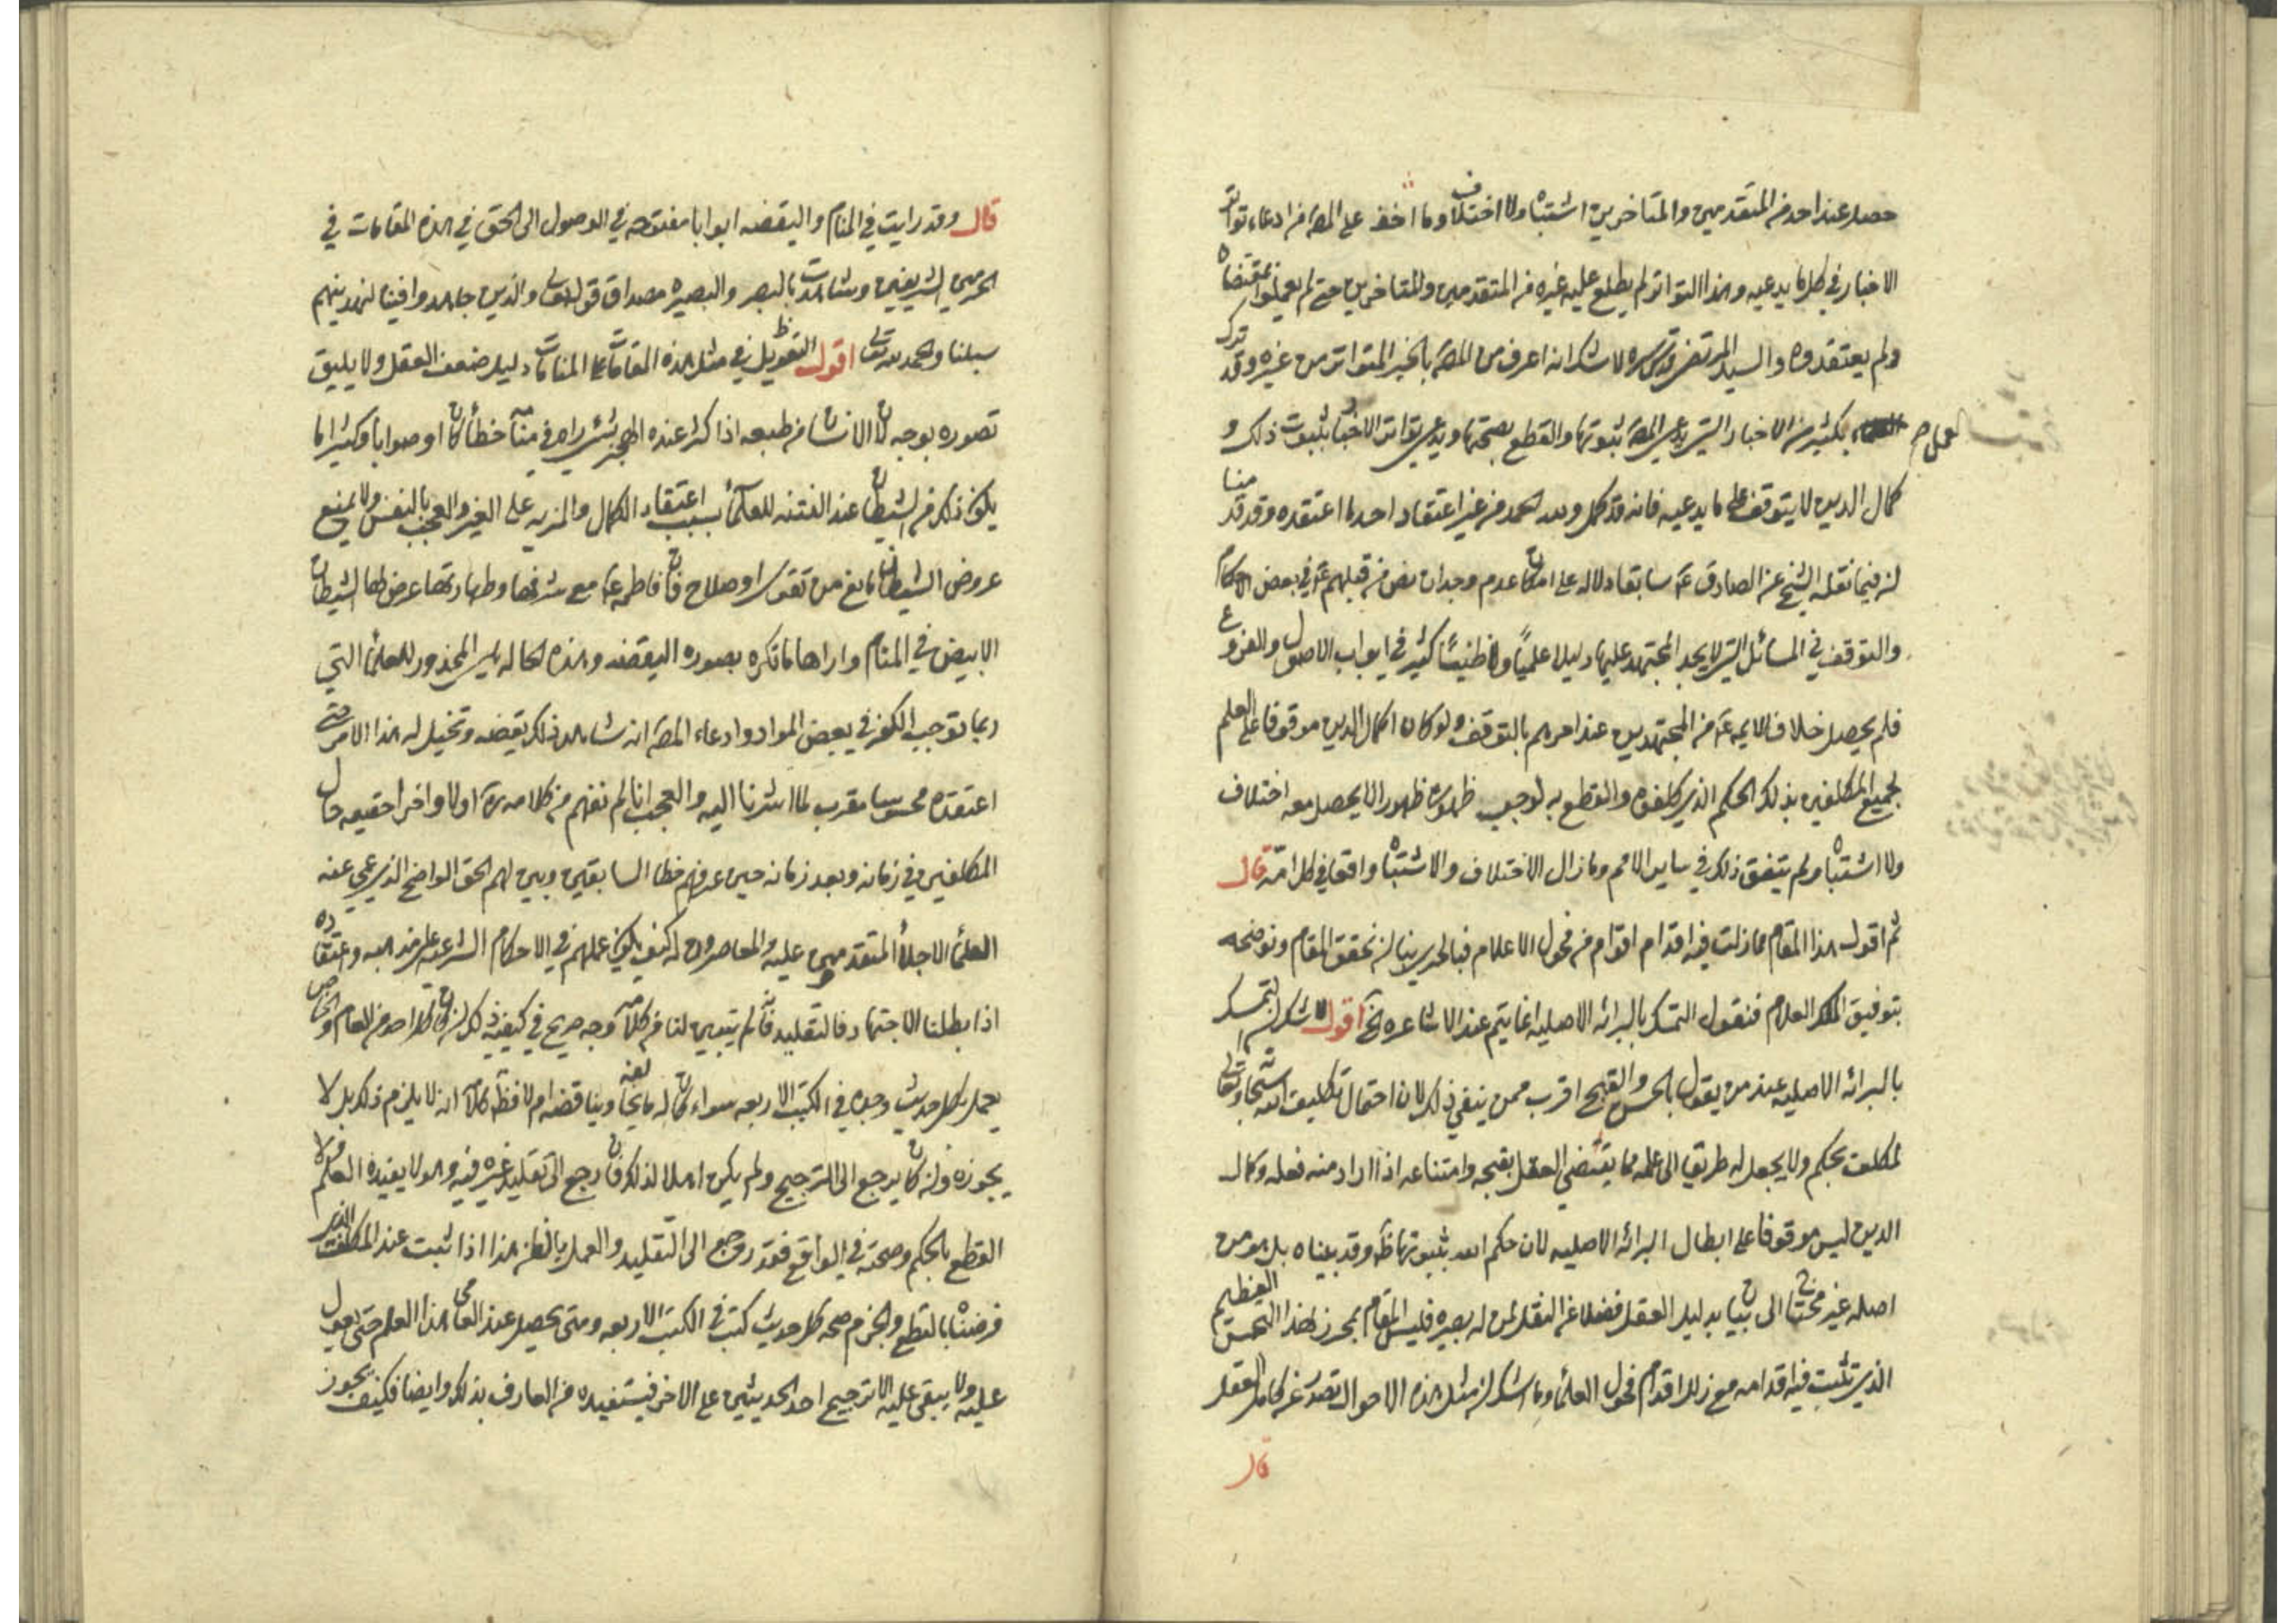 حصل عند احد من المتقدمين والمتاخرين اشتباه ولا اختلاف وما اخفى على المص من ادعاء تواتر
الاخبار في كل ما يدعيه وهذا التواتر لم يطلع عليه غيره من المتقدمين والمتاخرين حتى لم يعملوا بمقتضاه
ولم يعتقدوه والسيد المرتضى قدس سره لا شك انه اعرف من المص بالخبر المتواتر من غيره وقد ترك
العمل بكثير من الاخبار التي يدعي المص ثبوتها والقطع بصحتها ويدعي تواتر الاخبار بثبوت ذلك و
كمال الدين لا يتوقف على ما يدعيه فانه قد كمل ولله الحمد من غير اعتقاد احد ما اعتقده وقد قدمنا
ان فيما نقله الشيخ عن الصادق ع سابقا دلاله على امكان عدم وجدان نص من قبلهم ع في بعض الاحكام
والتوقف في المسائل التي لا يجد المجتهد عليها دليلا علميا ولا ظنيا كثير في ابواب الاصول والفروع
فلم يحصل خلاف للايمه ع من المجتهدين عند امرهم بالتوقف ولو كان اكمال الدين موقوفا على العلم
لجميع المكلفين بذلك الحكم الذي كلفوه والقطع به لوجب ظهوره ظهورا لا يحصل معه اختلاف
ولا اشتباه ولم يتفق ذلك في ساير الامم وما زال الاختلاف والاشتباه واقعا في كل امة قال
ثم اقول هذا المقام مما زلت فيه اقدام اقوام من فحول الاعلام فبالحري بنا ان نحقق المقام ونوضحه
بتوفيق الملك العلام فنقول التمسك بالبرائه الاصليه انما يتم عند الاشاعره الخ اقول لا شك ان التمسك
بالبرائه الاصليه عند من يقول بالحسن والقبح اقرب ممن ينفي ذلك لان احتمال تكليف الله سبحانه وتعالى
لمكلف بحكم ولا يجعل له طريقا الى علمه مما يقتضي العقل بقبحه وامتناعه اذا اراد منه فعله وكمال
الدين ليس موقوفا على ابطال البرائه الاصليه لان حكم الله بثبوتها ظ وقد بيناه بل هو من
اصله غير محتاج الى بيان بدليل العقل فضلا عن النقل لمن له بصيره فليس المقام بمحرز لهذا التحسن العظيم
الذي تثبت فيه اقدامه مع زلل اقدام فحول العلماء وما اشك ان مثل هذه الاحوال تصدر عن كامل العقل
قال
قال وقد رايت في المنام واليقضه ابوابا مفتوحه في الوصول الى الحق في هذه المقامات في
الحرمين الشريفين وشاهدت بالبصر والبصيره مصداق قوله تعالى والذين جاهدوا فينا لنهدينهم
سبلنا والحمد لله تعالى اقول التعويل في مثل هذه المقامات على المنامات دليل ضعف العقل ولا يليق
تصوره بوجه لان الانسان من طبعه اذا كثر عنده اللهج بشئ يراه في منامه خطأ كان او صوابا وكثيرا ما
يكون ذلك من الشيطان عند الفتنه للعلماء بسبب اعتقاد الكمال والمزيه على الغير والعجب بالنفس ولا يمنع
عروض الشيطان مانع من تقوى او صلاح فان فاطمه ع مع شرفها وطهارتها عرض لها الشيطان
الابيض في المنام واراها ما تكره بصوره اليقضه وهذه الحاله هي المحذور للعلماء التي
ربما توجب الكفر في بعض المواد وادعاء المص انه شاهد ذلك يقضه وتخيل له هذا الامر حتى
اعتقده محسوسا مقرب لما اشرنا اليه والعجب انا لم نفهم من كلامه مرة اولا واخرا حقيقه حال
المكلفين في زمانه وبعد زمانه حين عرفهم خطا السابقين وبين لهم الحق الواضح الذي عمي عنه
العلماء الاجلاء المتقدمين عليه والمعاصرون له كيف يكون عملهم في الاحكام الشرعيه على مذهبه واعتقاده
اذا بطلنا الاجتهاد فالتقليد فانه لم يتبين لنا من كلامه وجه صريح في كيفيه ذلك لان كان كل احد من العام والخاص
يعمل بكل حديث وجده في الكتب الاربعه سواء كان له ما يخالفه ويناقضه ام لا فظ كلامه انه لا يلزم ذلك بل لا
يجوزه وان كان يرجع الى الترجيح ولم يكن اهلا لذلك فان رجع الى تقليد غيره فيه وهو لا يفيده العلم ولا
القطع بالحكم وصحته في الواقع فقد رجع الى التقليد والعمل بالظن هذا اذا ثبت عند المكلف الذي
فرضناه بالقطع والجزم صحه كل حديث كتب في الكتب الاربعه ومتى يحصل عند العامي هذا العلم حتى يعول
عليه ولا يبقى عليه الا ترجيح احد الحديثين على الاخر فيستفيده من العارف بذلك وايضا فكيف يجوز